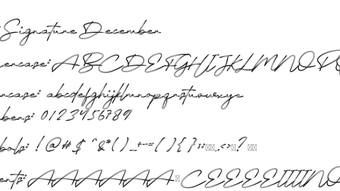 Signature December
ercase: ABCDEFGHIJKLMNOP
ercase: abcdefghijklmnopqrstuvwxyz
bers: 0123456789
bols: ! @ # $ ^ & * ( )
ents: AAAAAA CEEEEIIIIN